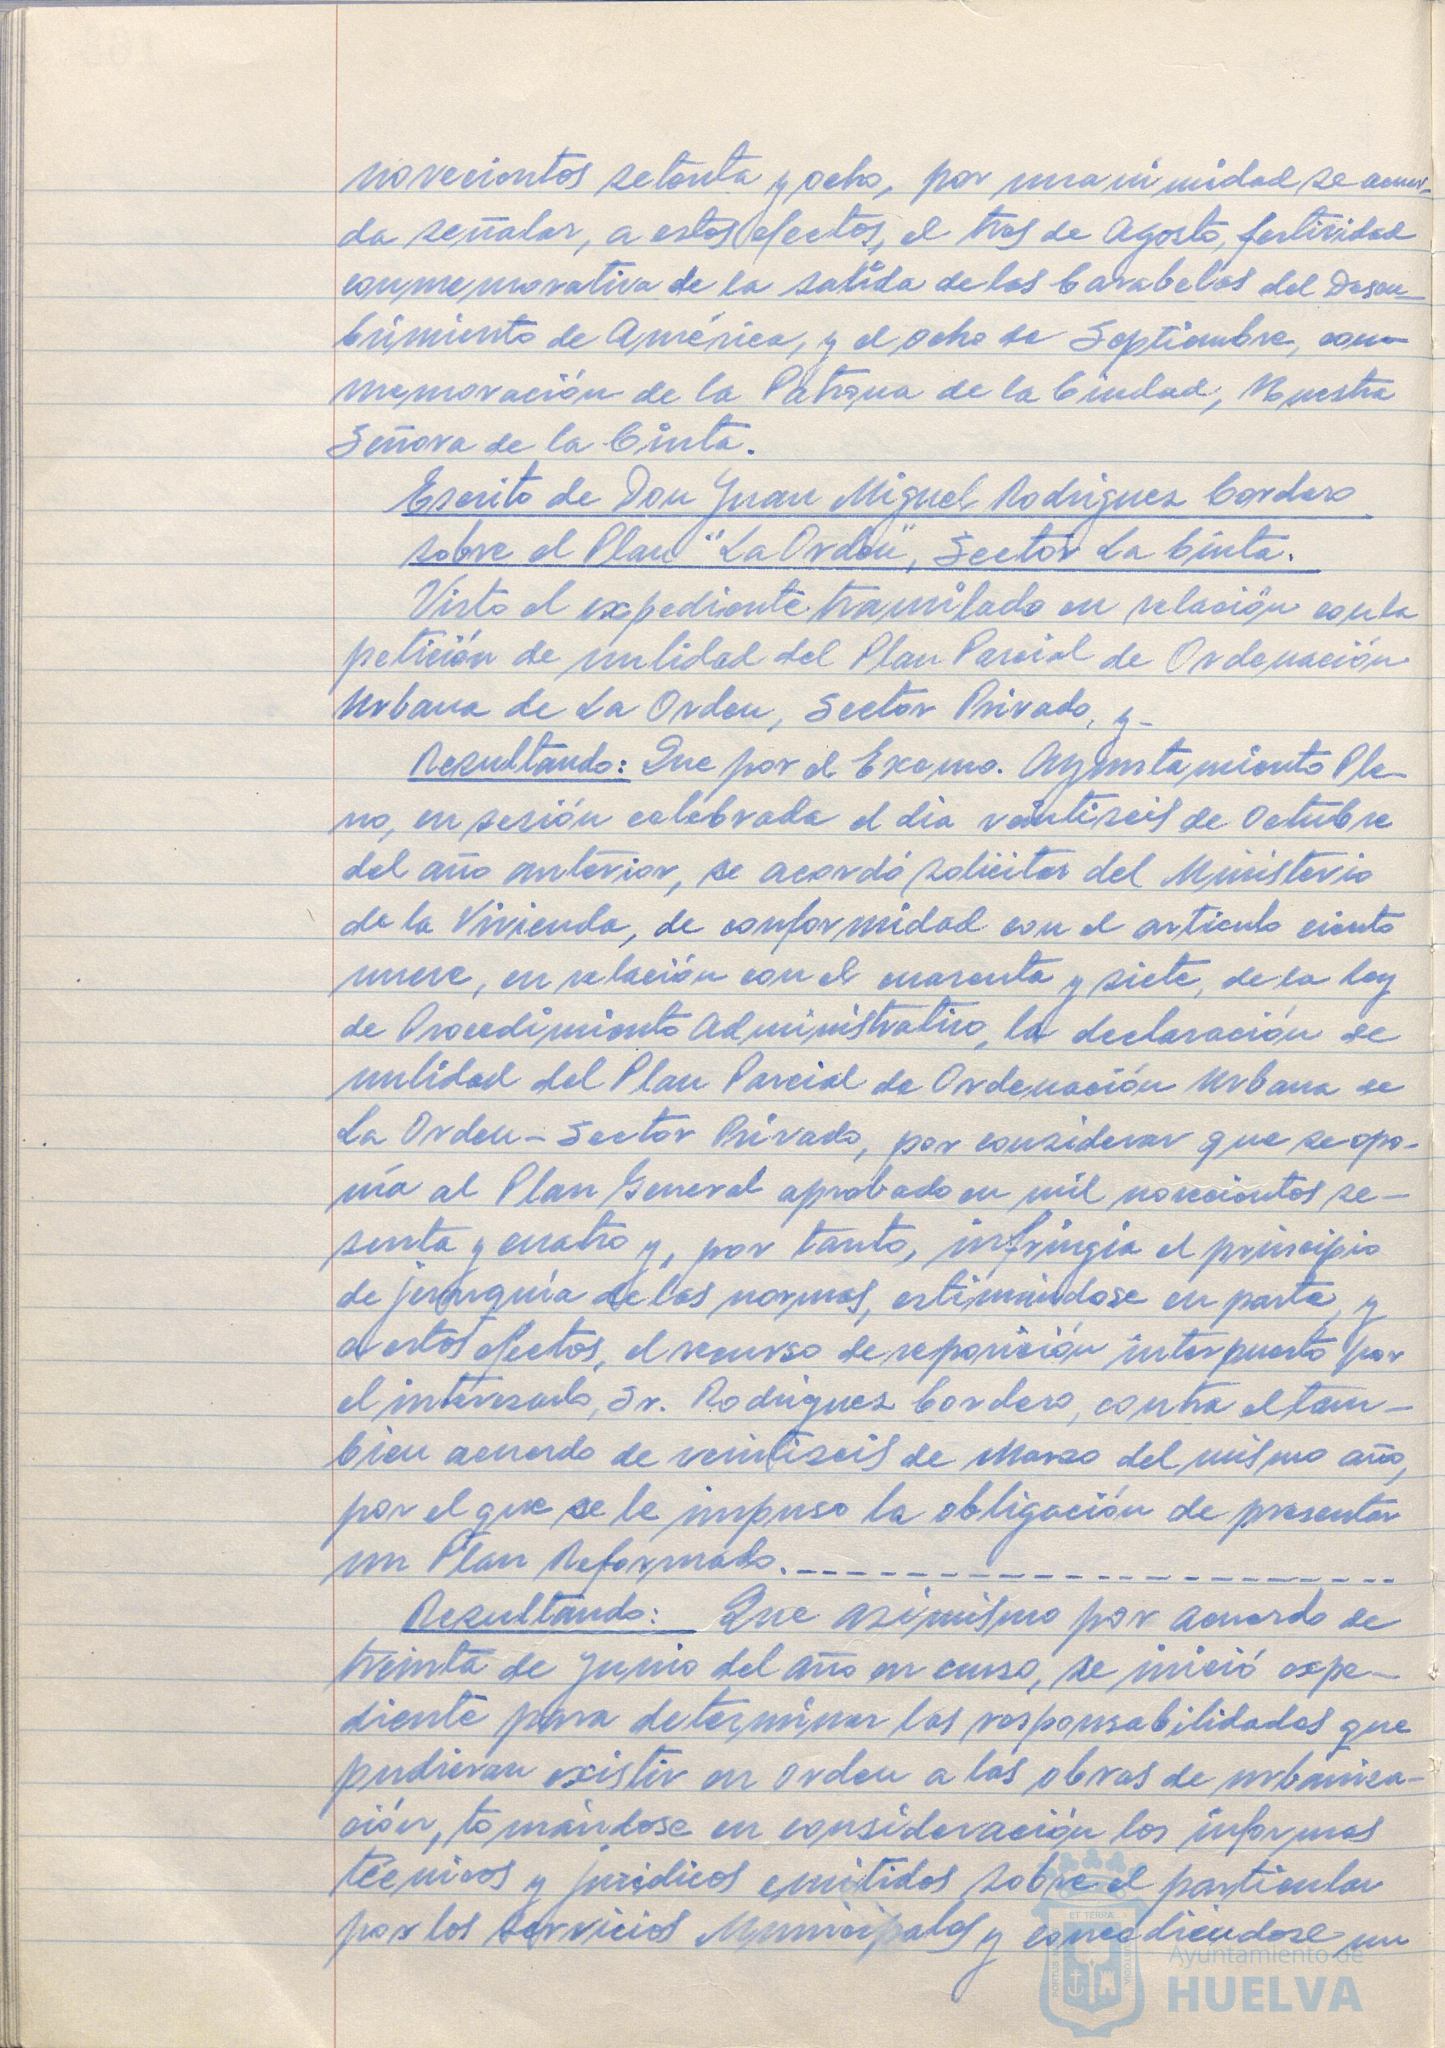 novecientos setenta y ocho, por unanimidad se acuer-
da señalar, a estos efectos, el tres de Agosto, festividad
conmemorativa de la salida de las Carabelas del Descu-
brimiento de América, y el ocho de Septiembre, con-
memoración de la Patrona de la Ciudad, Nuestra
Señora de la Cinta.
Escrito de Don Juan Miguel Rodriguez Cordero
sobre el Plan "La Orden", Sector La Cinta.
Visto el expediente tramitado en relación con la
petición de nulidad del Plan Parcial de Ordenación
Urbana de La Orden, Sector Privado, y-
Resultando: Que por el Excmo. Ayuntamiento Ple-
no, en sesión celebrada el dia veintiseis de Octubre
del año anterior, se acordó solicitar del Ministerio
de la Vivienda, de conformidad con el articulo ciento
nueve, en relación con el cuarenta y siete, de la Ley
de Procedimiento Administrativo, la declaración de
nulidad del Plan Parcial de Ordenación Urbana de
La Orden - Sector Privado, por considerar que se opo-
nía al Plan General aprobado en mil novecientos se-
senta y cuatro y, por tanto, infringia el principio
de jerarquía de las normas, estimándose en parte, y
a estos efectos, el recurso de reposición interpuesto por
el interesado, Sr. Rodriguez Cordero, contra el tam-
bien acuerdo de veintiseis de Marzo del mismo año,
por el que se le impuso la obligación de presentar
un Plan Reformado.
Resultando: Que asimismo por acuerdo de
treinta de Junio del año en curso, se inició expe-
diente para determinar las responsabilidades que
pudieran existir en orden a las obras de urbaniza-
ción, tomándose en consideración los informes
técnicos y juridicos emitidos sobre el particular
por los servicios Municipales y concediendose un
Ayuntamiento de
HUELVA